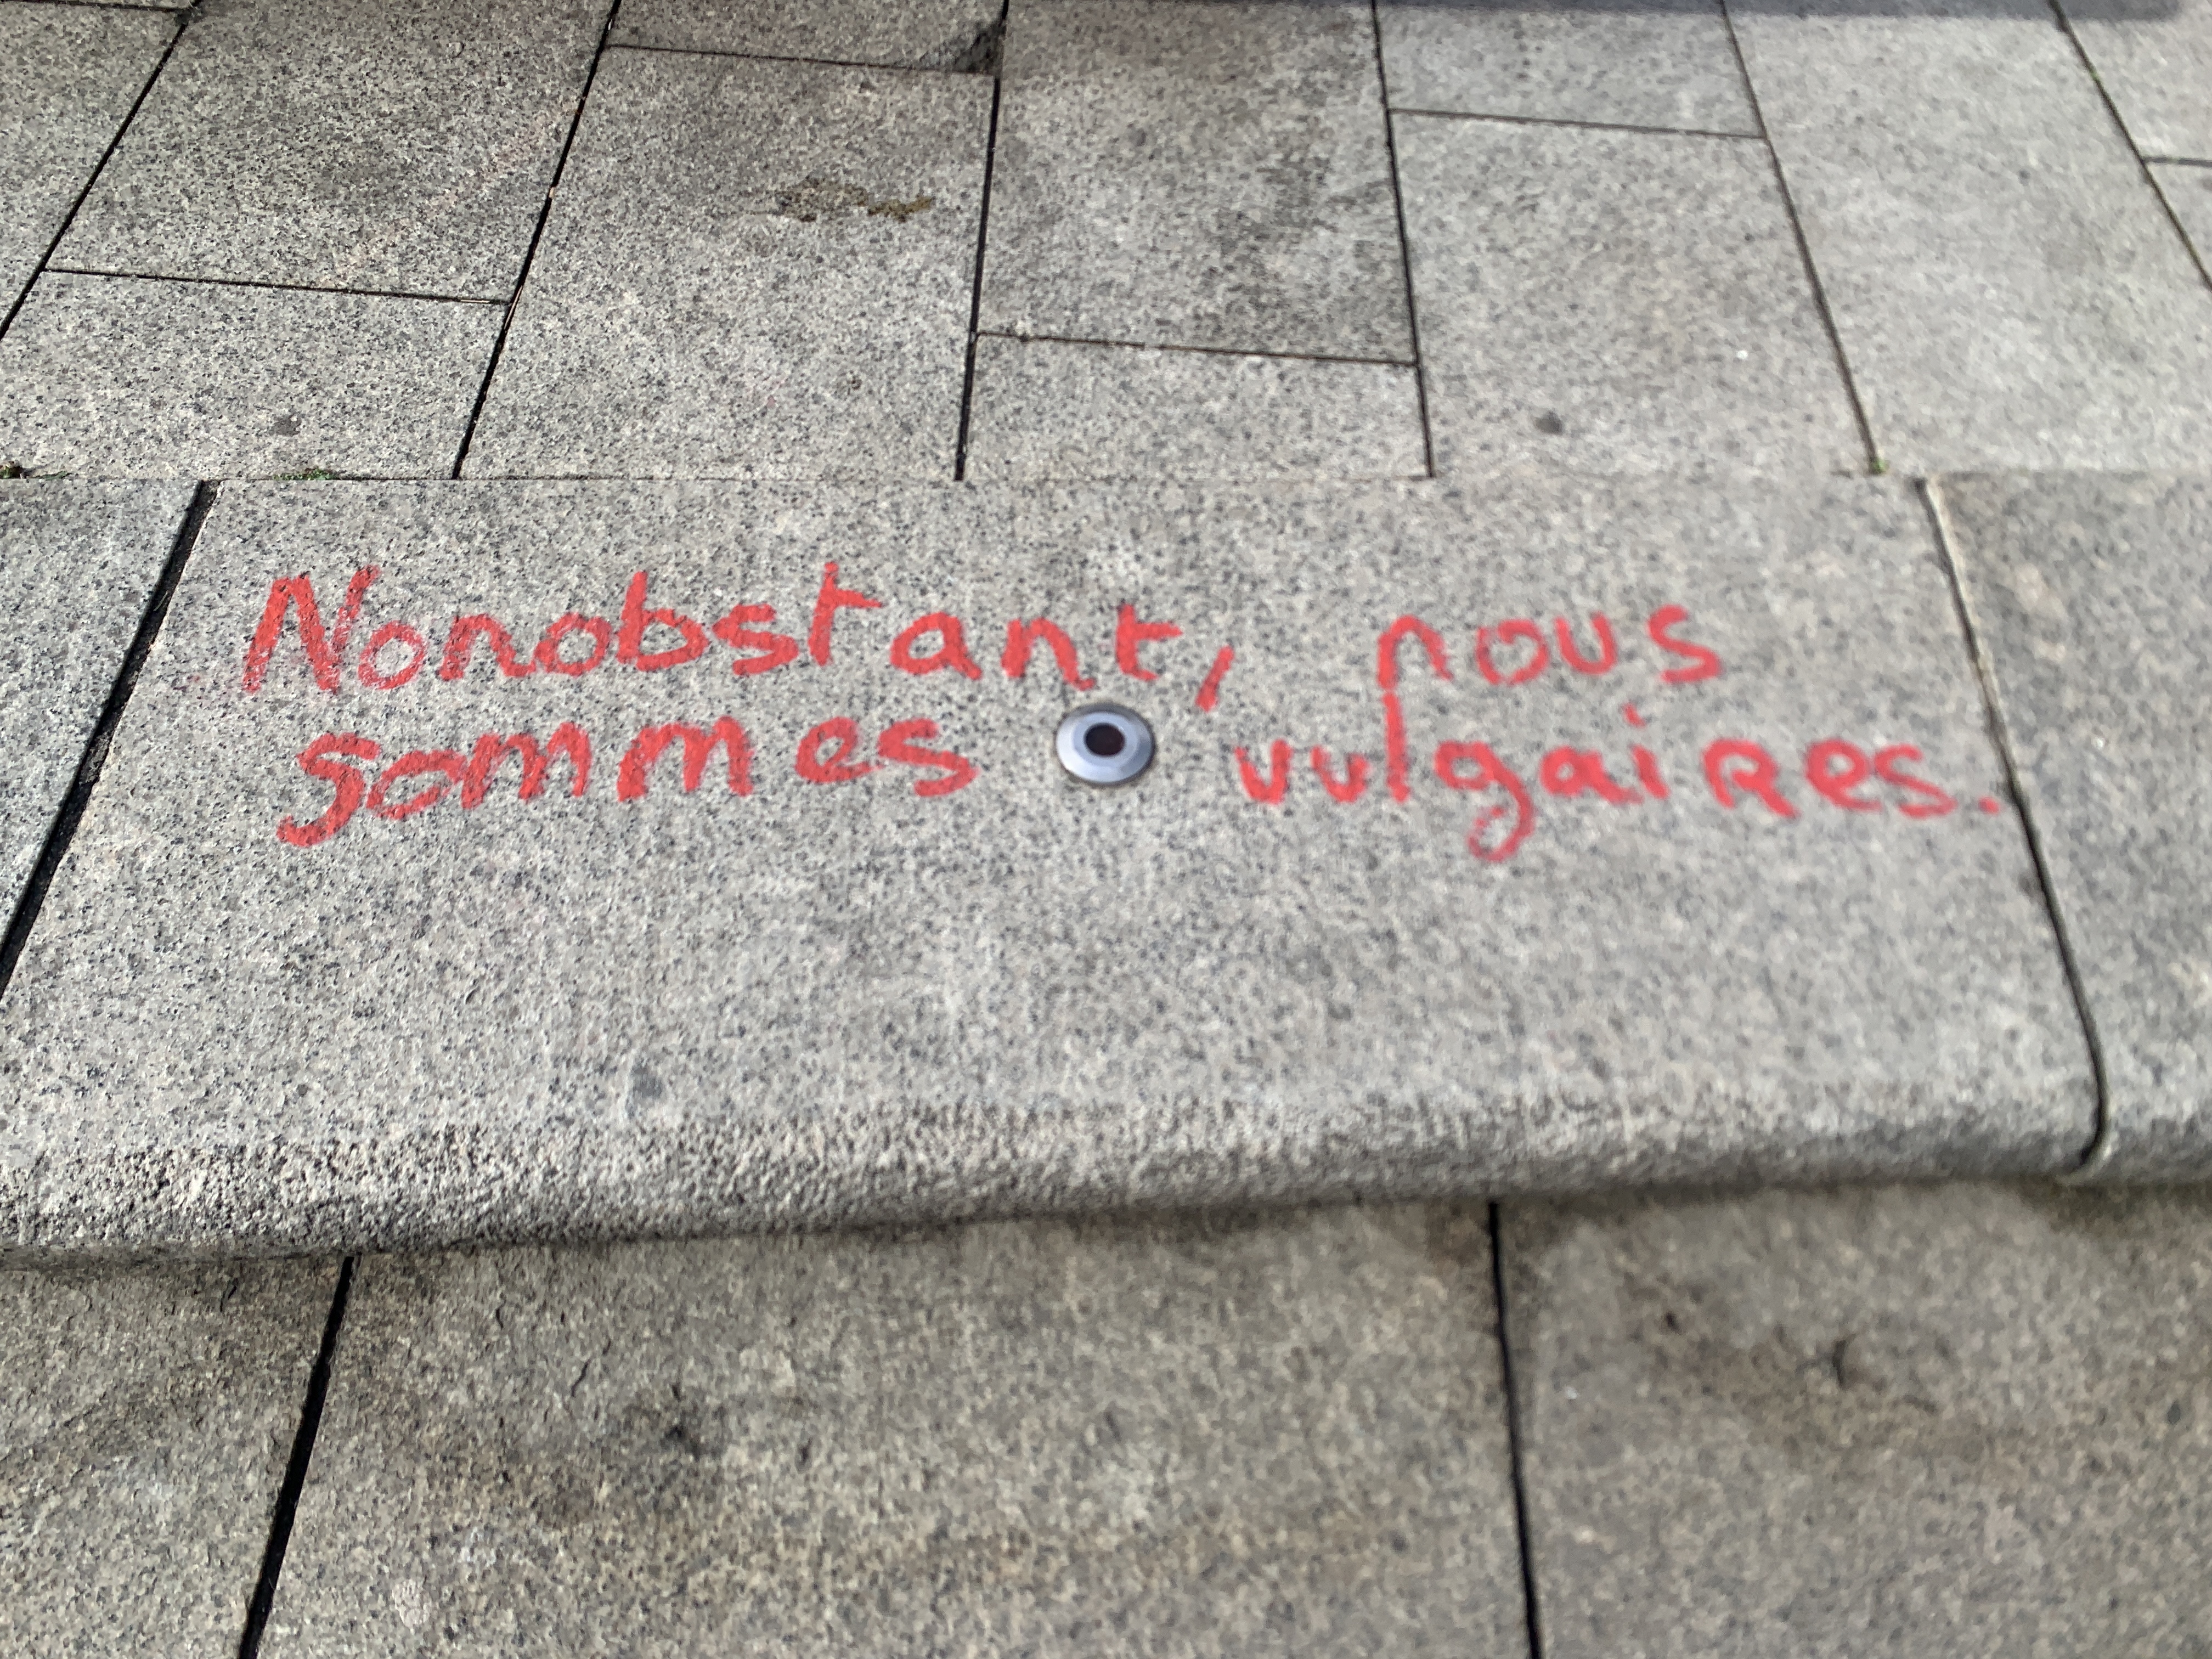 Nonobstant, nous
sommes vulgaires.